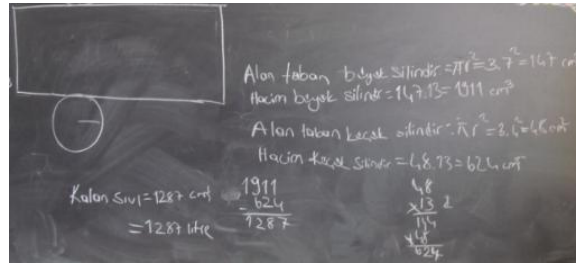 Alan taban büyük silindir = πr² = 3.7² = 147 cm²
Hacim büyük silindir = 147.13 = 1911 cm³
Alan taban küçük silindir = πr² = 3.4² = 48 cm²
Hacim küçük silindir = 48.13 = 624 cm³
Kalan sıvı = 1287 cm³
= 1.287 litre
1911
- 624
1287
48
x 13
144
x 48
624